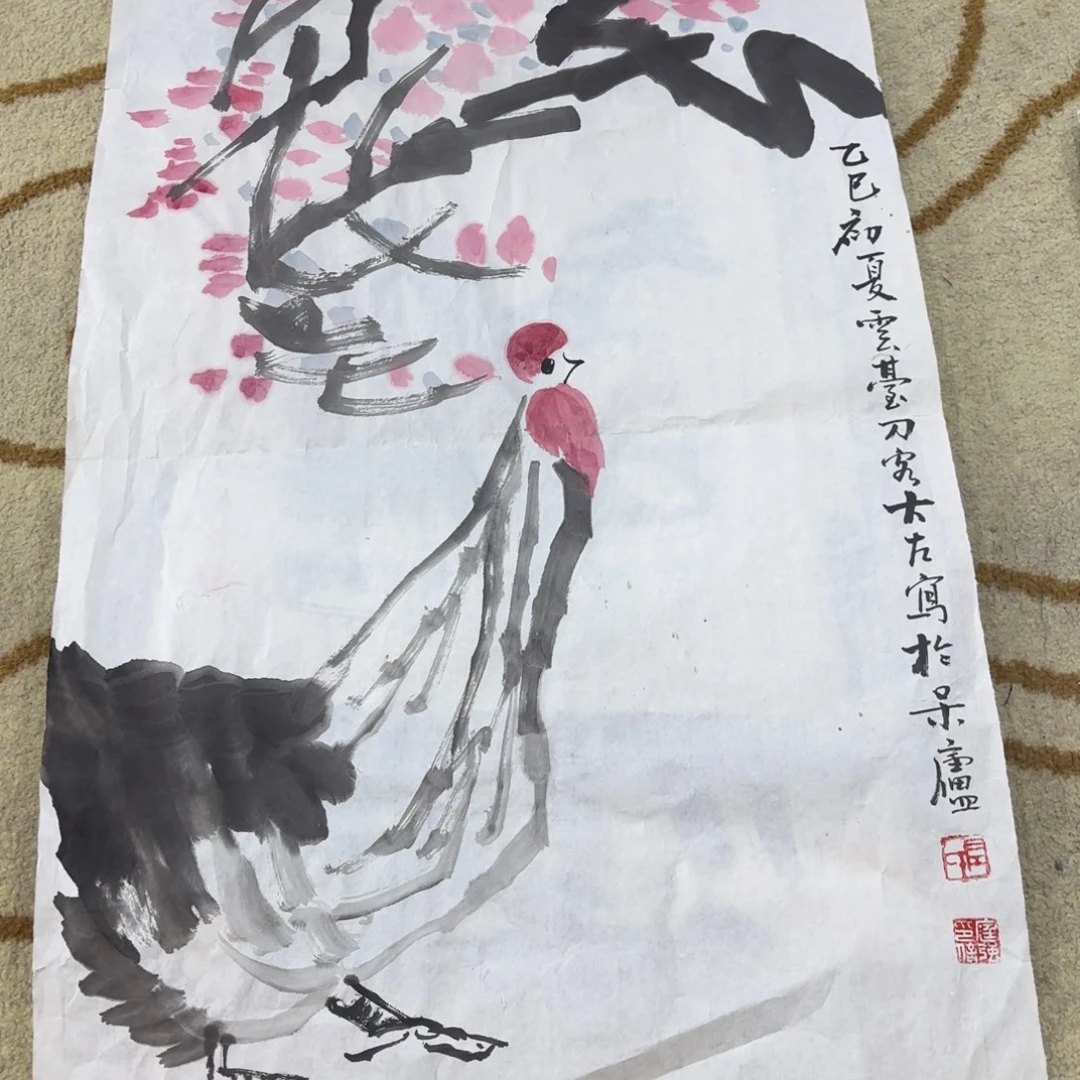 乙巳初夏雲臺刀客大左寫於呆廬